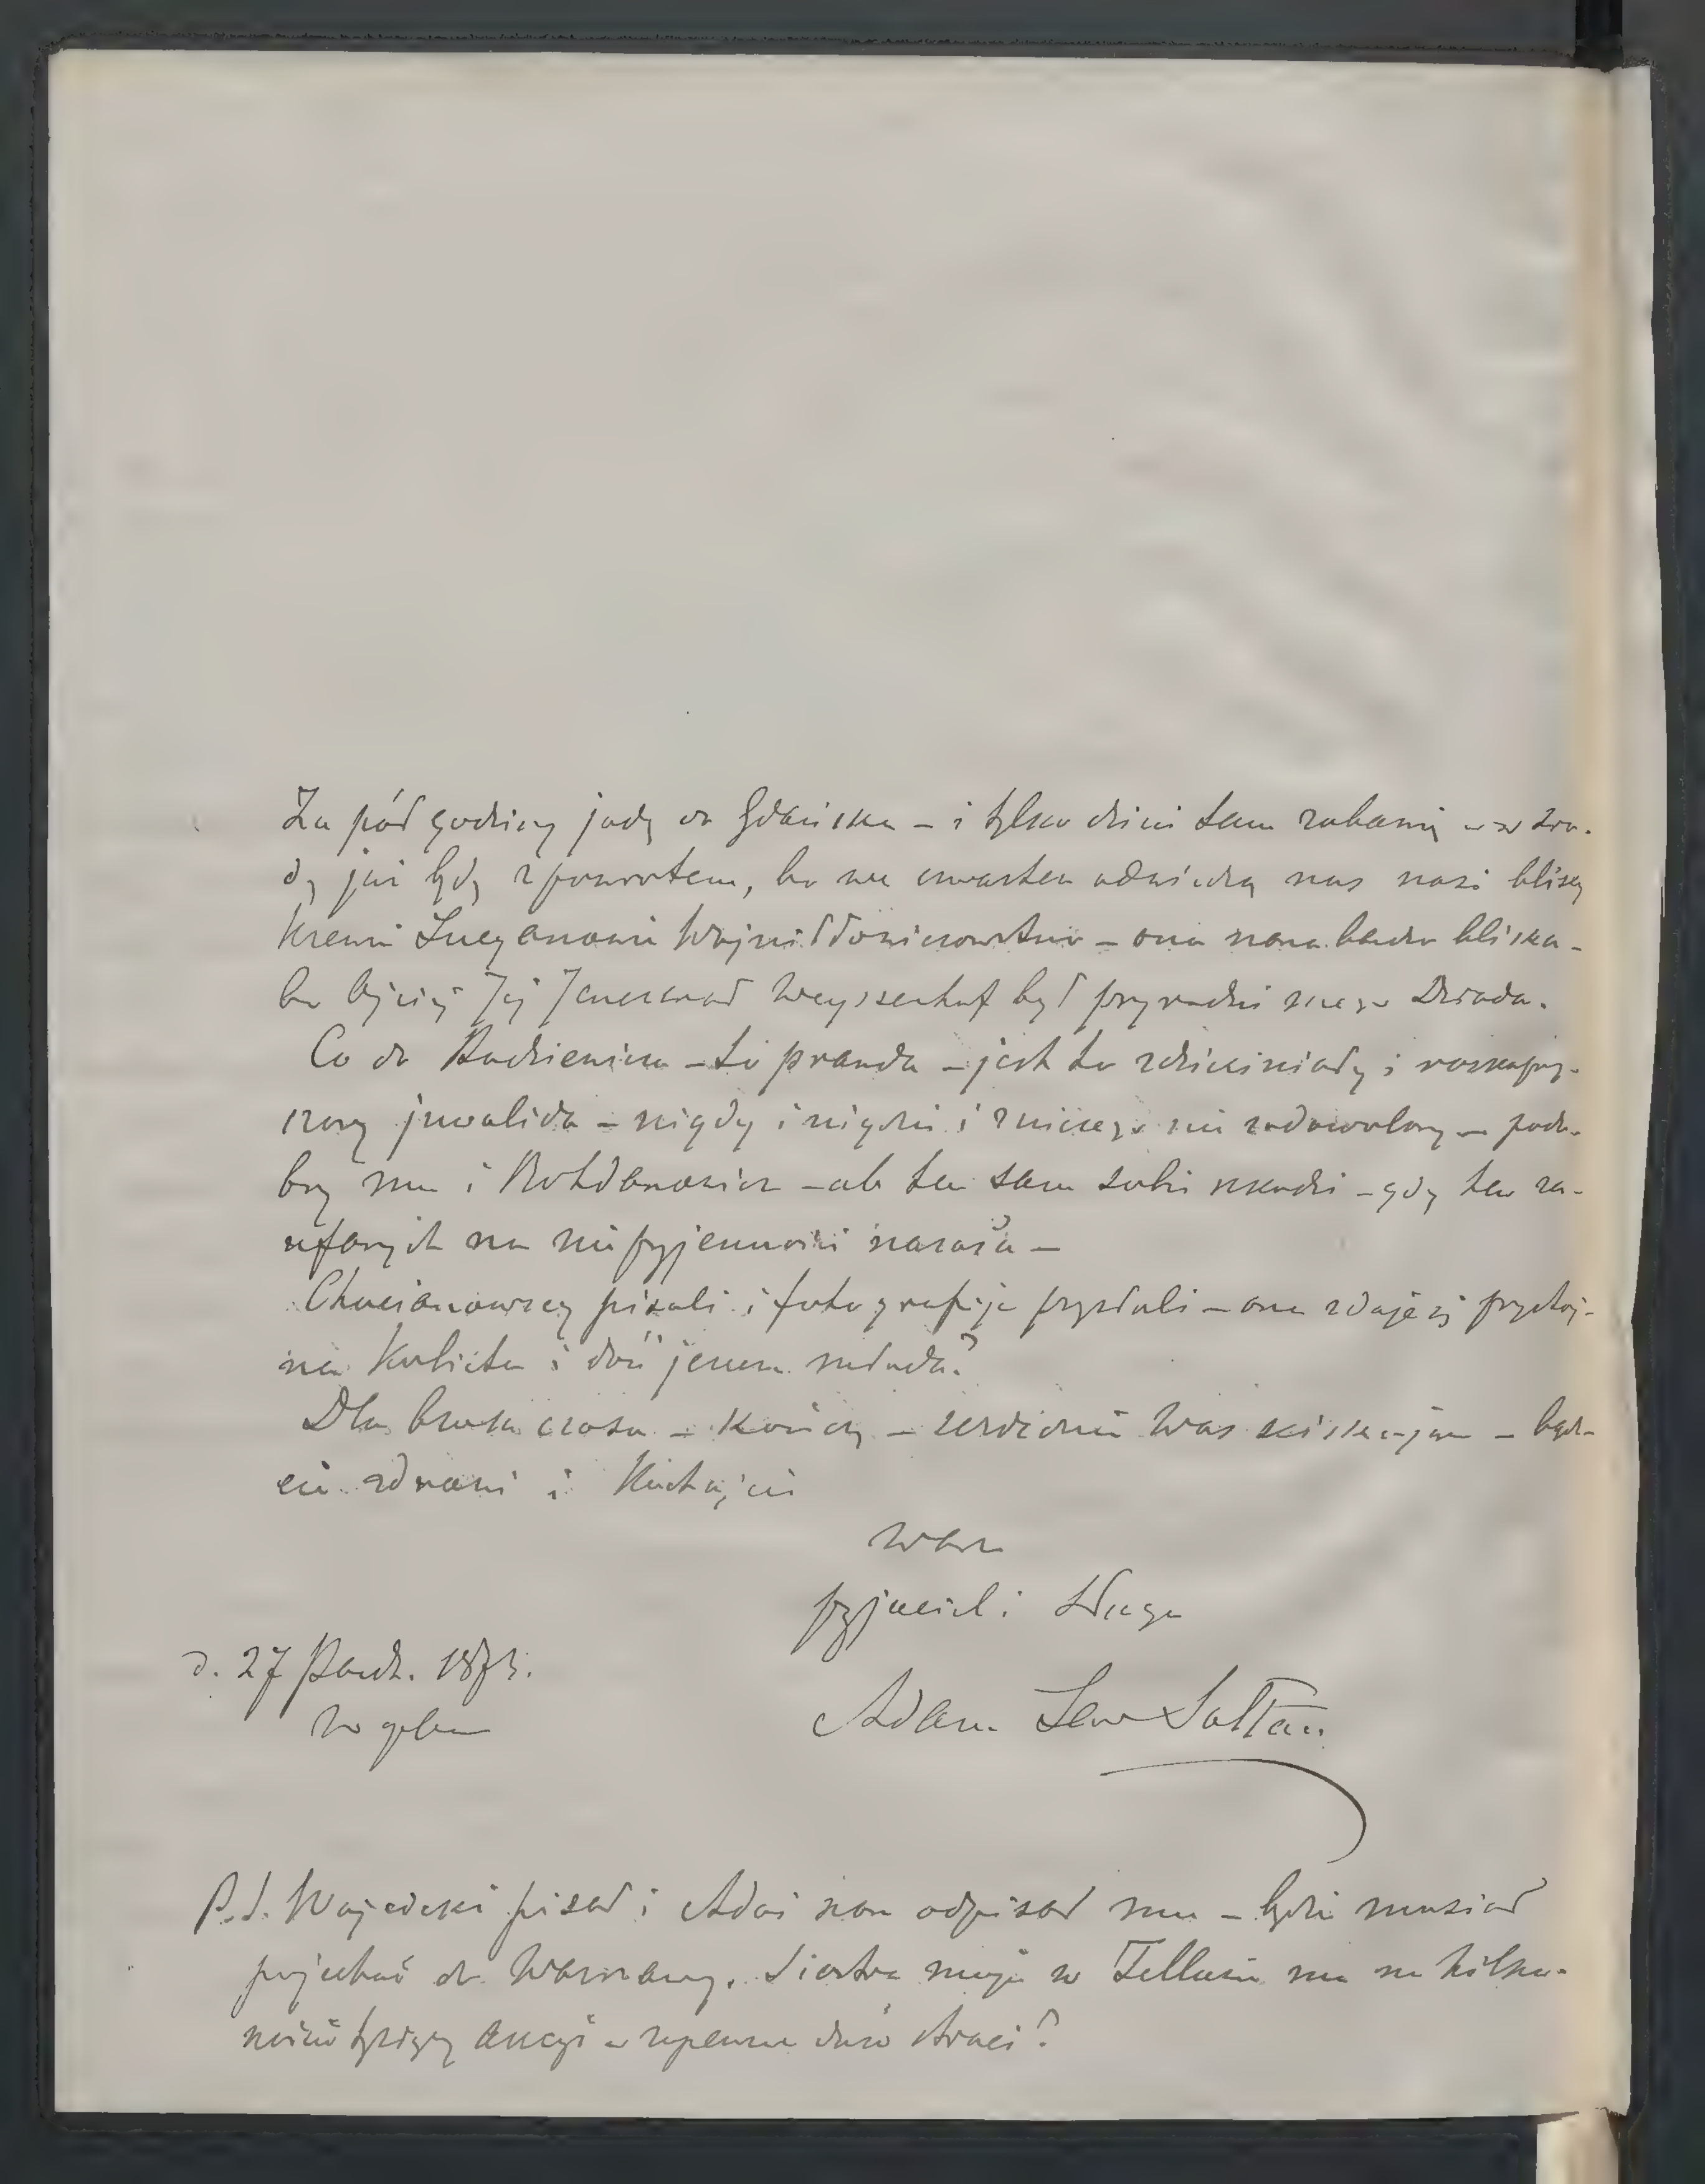 Za pół godziny jadę do Gdańska – i tylko dzień tam zabawię – w śro-
dę już będę z powrotem, bo we czwartek odwiedzą nas nasi bliscy
krewni Lucyanowie Wojniłłowiczowstwo – ona nam bardzo bliska –
bo ojciec Jej Jenerał Weyssenhof był przyrodni mego Dziada.
Co do – to prawda – jest to zdziwiniały i rozkapry-
szony inwalida – nigdy i nigdzie i z niczego nie zadowolony – podo-
bny mu i Bohdanowicz – ale ten sam sobie szkodzi – gdy ten za-
ufanych na nieprzyjemności naraża –
pisali i fotografije przysłali – ona zdaje się przystoj-
na Kobieta i dość jeszcze młoda?
Dla braku czasu – kończę – serdecznie Was ściskając – bądź-
cie zdrowi i Kochajcie
Wasz
przyjaciel i Sługa
d. 27 Paźdz. 187
Adam Lew Sołtan
P.S. pisał i Adaś nasz odpisał mu – będzie musiał
pojechać do Warszawy. Siostra moja w Tellusie ma na kilka-
naście tysięcy Akcyi – zapewne dużo straci?